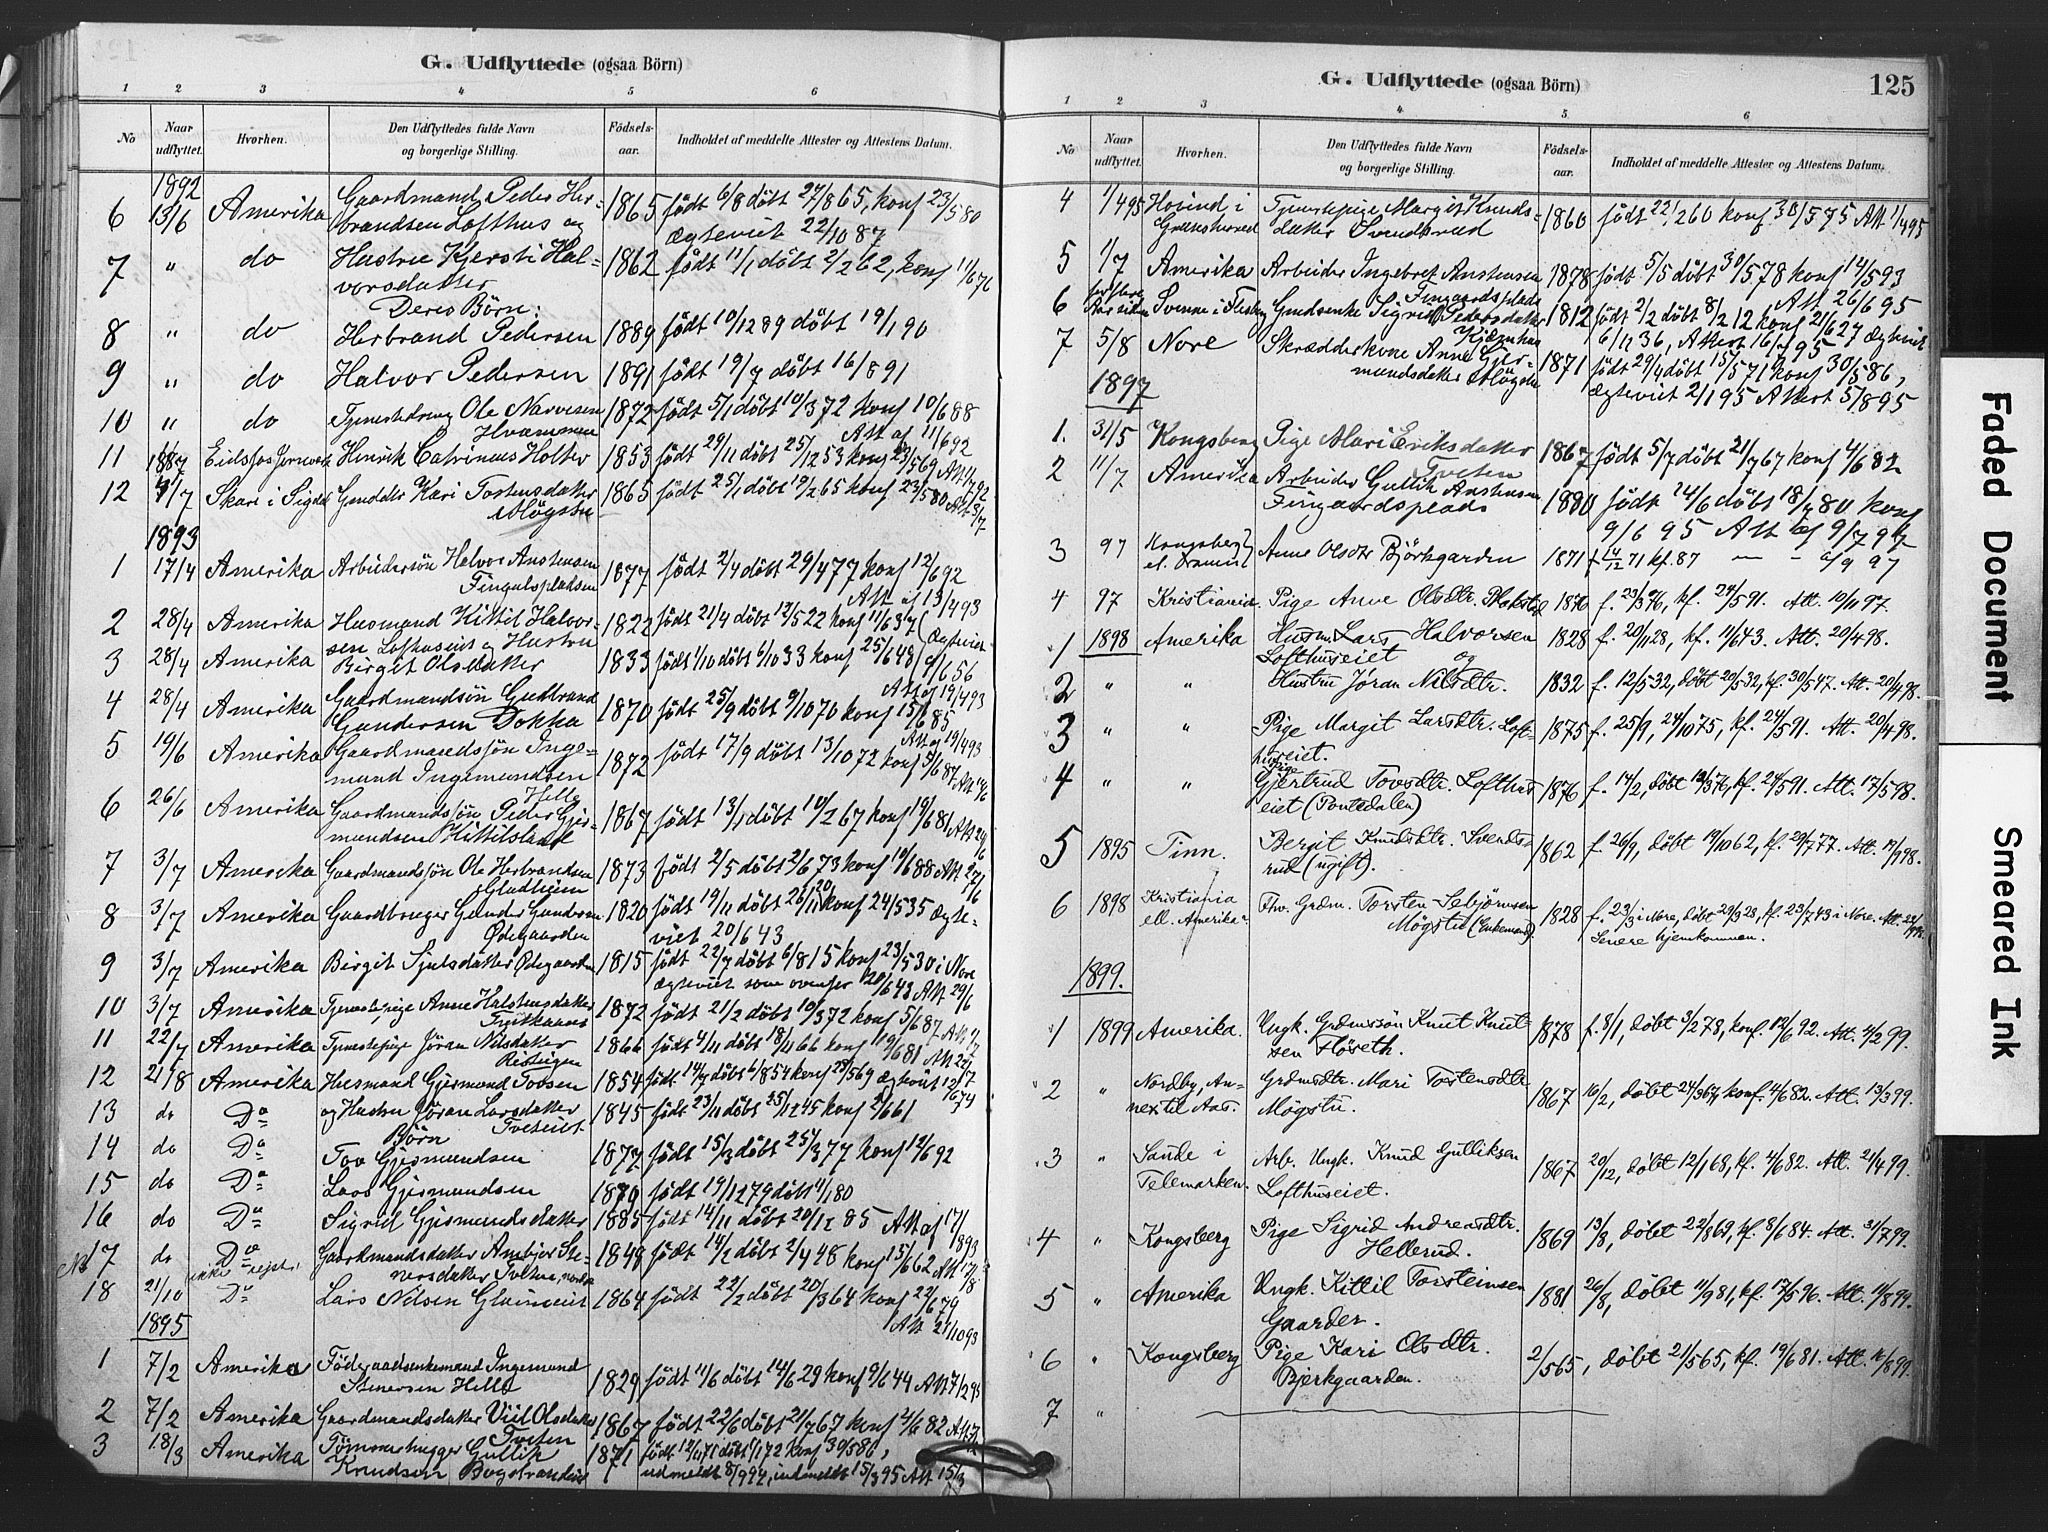 G. Udflyttede (ogsaa Börn)
1 2 3 4 5 6
No
Naar udflyttet.
Hvorhen.
Den Udflyttedes fulde Navn og borgerlige Stilling.
Födsels-aar.
Indholdet af meddelte Attester og Attestens Datum.
1892
6 13/6 Amerika Gaardmand Peder Her- 1865 født 6/8 døbt 27/8 65, konf 23/5 80
brandsen Lofthus og Ægteviet 22/10 87
7 " do Hustru Kjersti Hal- 1862 født 11/1 døbt 2/2 62, konf 11/6 76
vorsdatter
Deres Børn:
8 " do Herbrand Pedersen 1889 født 10/12 89 døbt 19/1 90
9 " do Halvor Pedersen 1891 født 19/7 døbt 16/8 91
10 " do Tjenestedreng Ole Narvesen 1872 født 5/1 døbt 10/3 72 konf 10/6 88
Hvammen Att af 11/6 92
11 1887 Eidsfos Jernverk Henrik Catrinus Holter 1853 født 29/11 døbt 25/12 53 konf 23/5 69 Att
12 7/7 Skari i Sigdal Kari Tostensdatter 1865 født 25/1 døbt 19/2 65 konf 23/5 80 Att 3/7
Møgstu
1893
1 17/4 Amerika Arbeidersøn Halvor Anstensen 1877 født 2/4 døbt 29/4 77 konf 12/6 92
Fingalspladsen Att af 13/4 93
2 28/4 Amerika Husmand Kittil Halvor- 1822 født 21/4 døbt 12/5 22 konf 11/6 37 (Ægteviet
sen Lofthuseit og Hustru
3 28/4 Amerika Birgit Olsdatter 1833 født 1/10 døbt 6/10 33 konf 25/6 48 9/6 56
Att af 19/4 93
4 28/4 Amerika Gaardmandsøn Gudbrand 1870 født 25/9 døbt 9/10 70 konf 15/6 85
Gundersen Dokka Att af 19/4 93
5 19/6 Amerika Gaardmandsøn Inge- 1872 født 17/9 døbt 13/10 72 konf 5/6 87 Att
mund Ingemundsen
Helle
6 26/6 Amerika Gaardmandsøn Peder Gjer- 1867 født 13/1 døbt 10/2 67 konf 19/6 81 Att
mundsen Kittilsland
7 3/7 Amerika Gaardmandsøn Ole Herbrandsen 1873 født 2/5 døbt 2/6 73 konf 10/6 88 Att
Gladheim
8 3/7 Amerika Gaardbruger Gunder Gundersen 1820 født 19/11 døbt 26/11 20 konf 24/5 35 Ægte-
Ødegaarden viet 20/6 43
9 3/7 Amerika Birgit Sjulsdatter Ødegaarden 1815 født 22/7 døbt 6/8 15 konf 23/5 30 i Nore
Ægteviet som ovenfor 20/6 43 Att 29/6
10 3/7 Amerika Tjenestepige Anne Halstensdatter 1872 født 21/2 døbt 10/3 72 konf 5/6 87 Att
11 22/7 Amerika Tjenestepige Jøran Nilsdatter 1866 født 4/11 døbt 18/11 66 konf 19/6 81 Att 22/7
12 21/8 Amerika Husmand Gjermund Tovsen 1854 født 14/7 døbt 6/8 54 konf 23/5 69 Ægteviet 12/6 74
13 do Do og Hustru Jøran Larsdatter 1845 født 23/11 døbt 25/12 45 konf 2/6 61
Børn Tveteiet
14 do Do Tov Gjermundsen 1877 født 15/3 døbt 25/3 77 konf 12/6 92
15 do Do Lars Gjermundsen 1879 født 19/12 79 døbt 4/1 80
16 do Do Sigrid Gjermundsdatter 1885 født 14/11 døbt 20/12 85 Att af 17/8 93
17 do Do Gaardmandsdatter Ambjør Ste- 1848 født 14/2 døbt 2/4 48 konf 15/6 62 Att 17/8
nersdatter Tveten
18 21/10 Do Lars Nilsen 1864 født 22/2 døbt 20/3 64 konf 22/6 79
Att 21/10 93
1895
1 7/2 Amerika Føderaadsenkemand Ingemund 1829 født 11/6 døbt 14/6 29 konf 9/6 44 Att 7/2 95
Stenersen Helle
2 7/2 Amerika Gaardmandsdatter Viil Olsdatter 1867 født 22/6 døbt 21/7 67 konf 4/6 82 Att
Tveten
3 18/3 Amerika Tømmerhugger Gullik 1871 født 12/11 71 døbt 1/1 72 konf 30/5 86,
Knudsen Bogstrandeiet udmeldt 8/9 94, indmeldt 15/3 95 Att 15/3
G. Udflyttede (ogsaa Börn)
125
1 2 3 4 5 6
No
Naar udflyttet.
Hvorhen.
Den Udflyttedes fulde Navn og borgerlige Stilling.
Födsels-aar.
Indholdet af meddelte Attester og Attestens Datum.
4 1/4 95 Hovind i Tjenestepige Margit Knuds- 1860 født 22/2 60 konf 30/5 75 Att 1/4 95
Gransherred datter Svendsrud
5 1/7 Amerika Arbeider Ingebret Anstensen 1878 født 5/5 døbt 30/5 78 konf 14/5 93
Fingaardsplads Att 26/6 95
6 Svenne i Flesberg Sigrid Pedersdatter 1812 født 2/2 døbt 8/2 12 konf 21/6 27 Ægteviet
Kjemhus 6/11 36, Attest
7 5/8 Nore Skrædderkone Anne Gjer- 1871 født 29/4 døbt 15/5 71 konf 30/5 86,
mundsdatter Møgstu Ægteviet 2/1 95 Attest 5/8 95
1897
1. 31/5 Kongsberg Pige Mari Eriksdatter 1867 født 5/7 døbt 21/7 67 konf 4/6 82
Tveten
2 11/7 Amerika Arbeider Gullik Anstensen 1880 født 14/6 døbt 18/7 80 konf
Fingaardsplads 9/6 95 Att af 9/7 97
3 97 Kongsberg Anne Olsdtr Björkgarden 1871 f 14/12 71 kf. 87 — - 6/9 97
el. Drammen
4 97 Kristiania Pige Anne Olsdtr. 1876 f. 23/3 76, kf. 24/5 91. Att. 10/11 97.
1 1898 Amerika Husm. Lars Halvorsen 1828 f. 20/11 28, kf. 11/6 43. Att. 20/4 98.
Lofthuseiet og
2 " " Hustru Jöran Nilsdtr. 1832 f. 12/5 32, döbt 20/5 32, kf. 30/5 47. Att. 20/4 98.
3 " " Pige Margit Larsdtr. Loft- 1875 f. 25/9, 24/10 75, kf. 24/5 91. Att. 20/4 98.
huseiet.
4 " " Pige Gjertrud Tovsdtr. Lofthus- 1876 f. 14/2, döbt 12/3 76, kf. 24/5 91. Att. 17/5 98.
eiet (Tovtsdalen)
5 1895 Tinn. Bergit Knudsdtr. Svends- 1862 f. 26/9, döbt 19/10 62, kf. 29/7 77. Att. 17/9 98.
rud (ugift).
6 1898 Kristiania Fhv. Grdm. Torsten Sebjörnsen 1828 f. 23/3 i Nore, döbt 29/3 28, kf. 23/7 43 i Nore. Att.
ell. Amerika? Mögstu (Enkemand). Senere hjemkommen.
1899.
1 1899 Amerika. Ungk. Grdmssön Knut Knut- 1878 f. 8/1, döbt 3/2 78, konf. 12/6 92. Att. 4/2 99.
sen Flöseth.
2 " Nordby, An- Grdmsdtr. Mari Torstensdtr. 1867 16/2, döbt 24/3 67, konf. 4/6 82. Att. 13/3 99.
nex til Aas. Mögstu.
3 " Sande i Arb. Ungk. Knud Gulliksen 1867 20/12, döbt 12/1 68, kf. 4/6 82. Att. 21/4 99.
Telemarken. Lofthuseiet.
4 " Kongsberg Pige Sigrid Andreasdtr. 1869 13/8, döbt 22/8 69, kf. 8/6 84. Att. 31/7 99.
Hellerud.
5 " Amerika Ungk. Kittil Torsteinsen 1881 26/8, döbt 11/9 81, kf. 17/5 96. Att. 11/8 99.
Gaarder.
6 " Kongsberg Pige Kari Olsdtr. 2/5 65, döbt 21/5 65, kf. 19/6 81. Att. 16/8 99.
Bjerkgaarden.
7 "
Faded Document
Smeared Ink